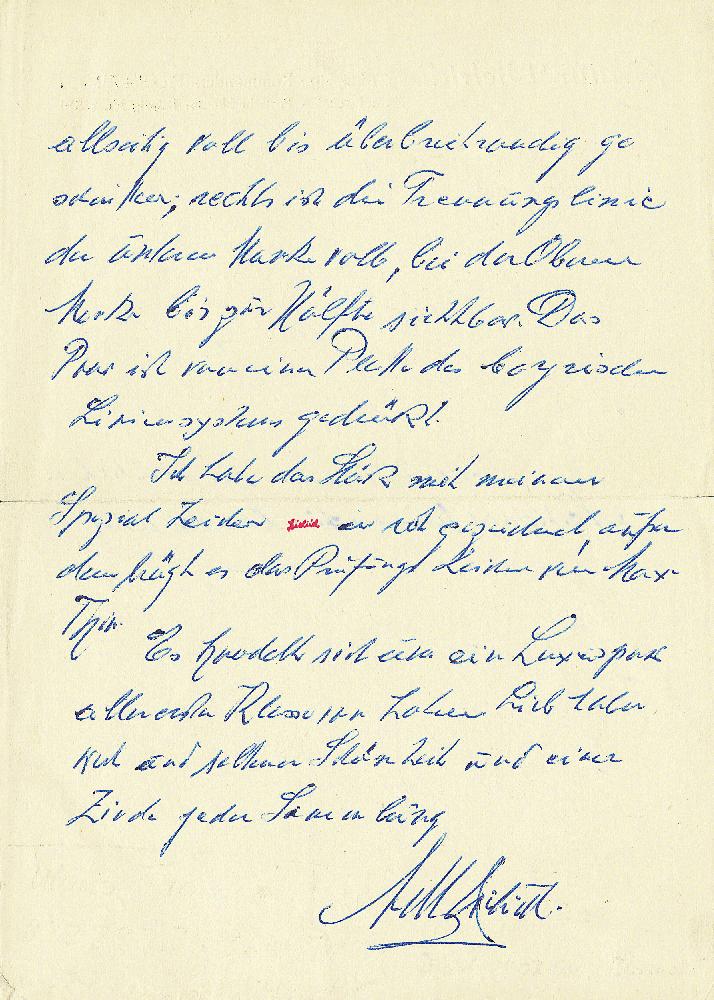 allseitig voll bis überbreitrandig ge
schnitten; rechts ist die Trennungslinie
der unteren Marke voll, bei der Oberen
Marke bis zur Hälfte sichtbar. Das
Paar ist von einer Platte des bayrischen
Liniensystems gedruckt.
Ich habe das Stück mit meinem
Spezial Zeichen in rot gezeichnet, außer
dem trägt es das Prüfungs Zeichen von Max
Thier.
Es handelt sich um ein Luxuspaar
allererster Klasse von hoher Liebhaber
keit und seltener Schönheit und einer
Zierde jeder Sammlung